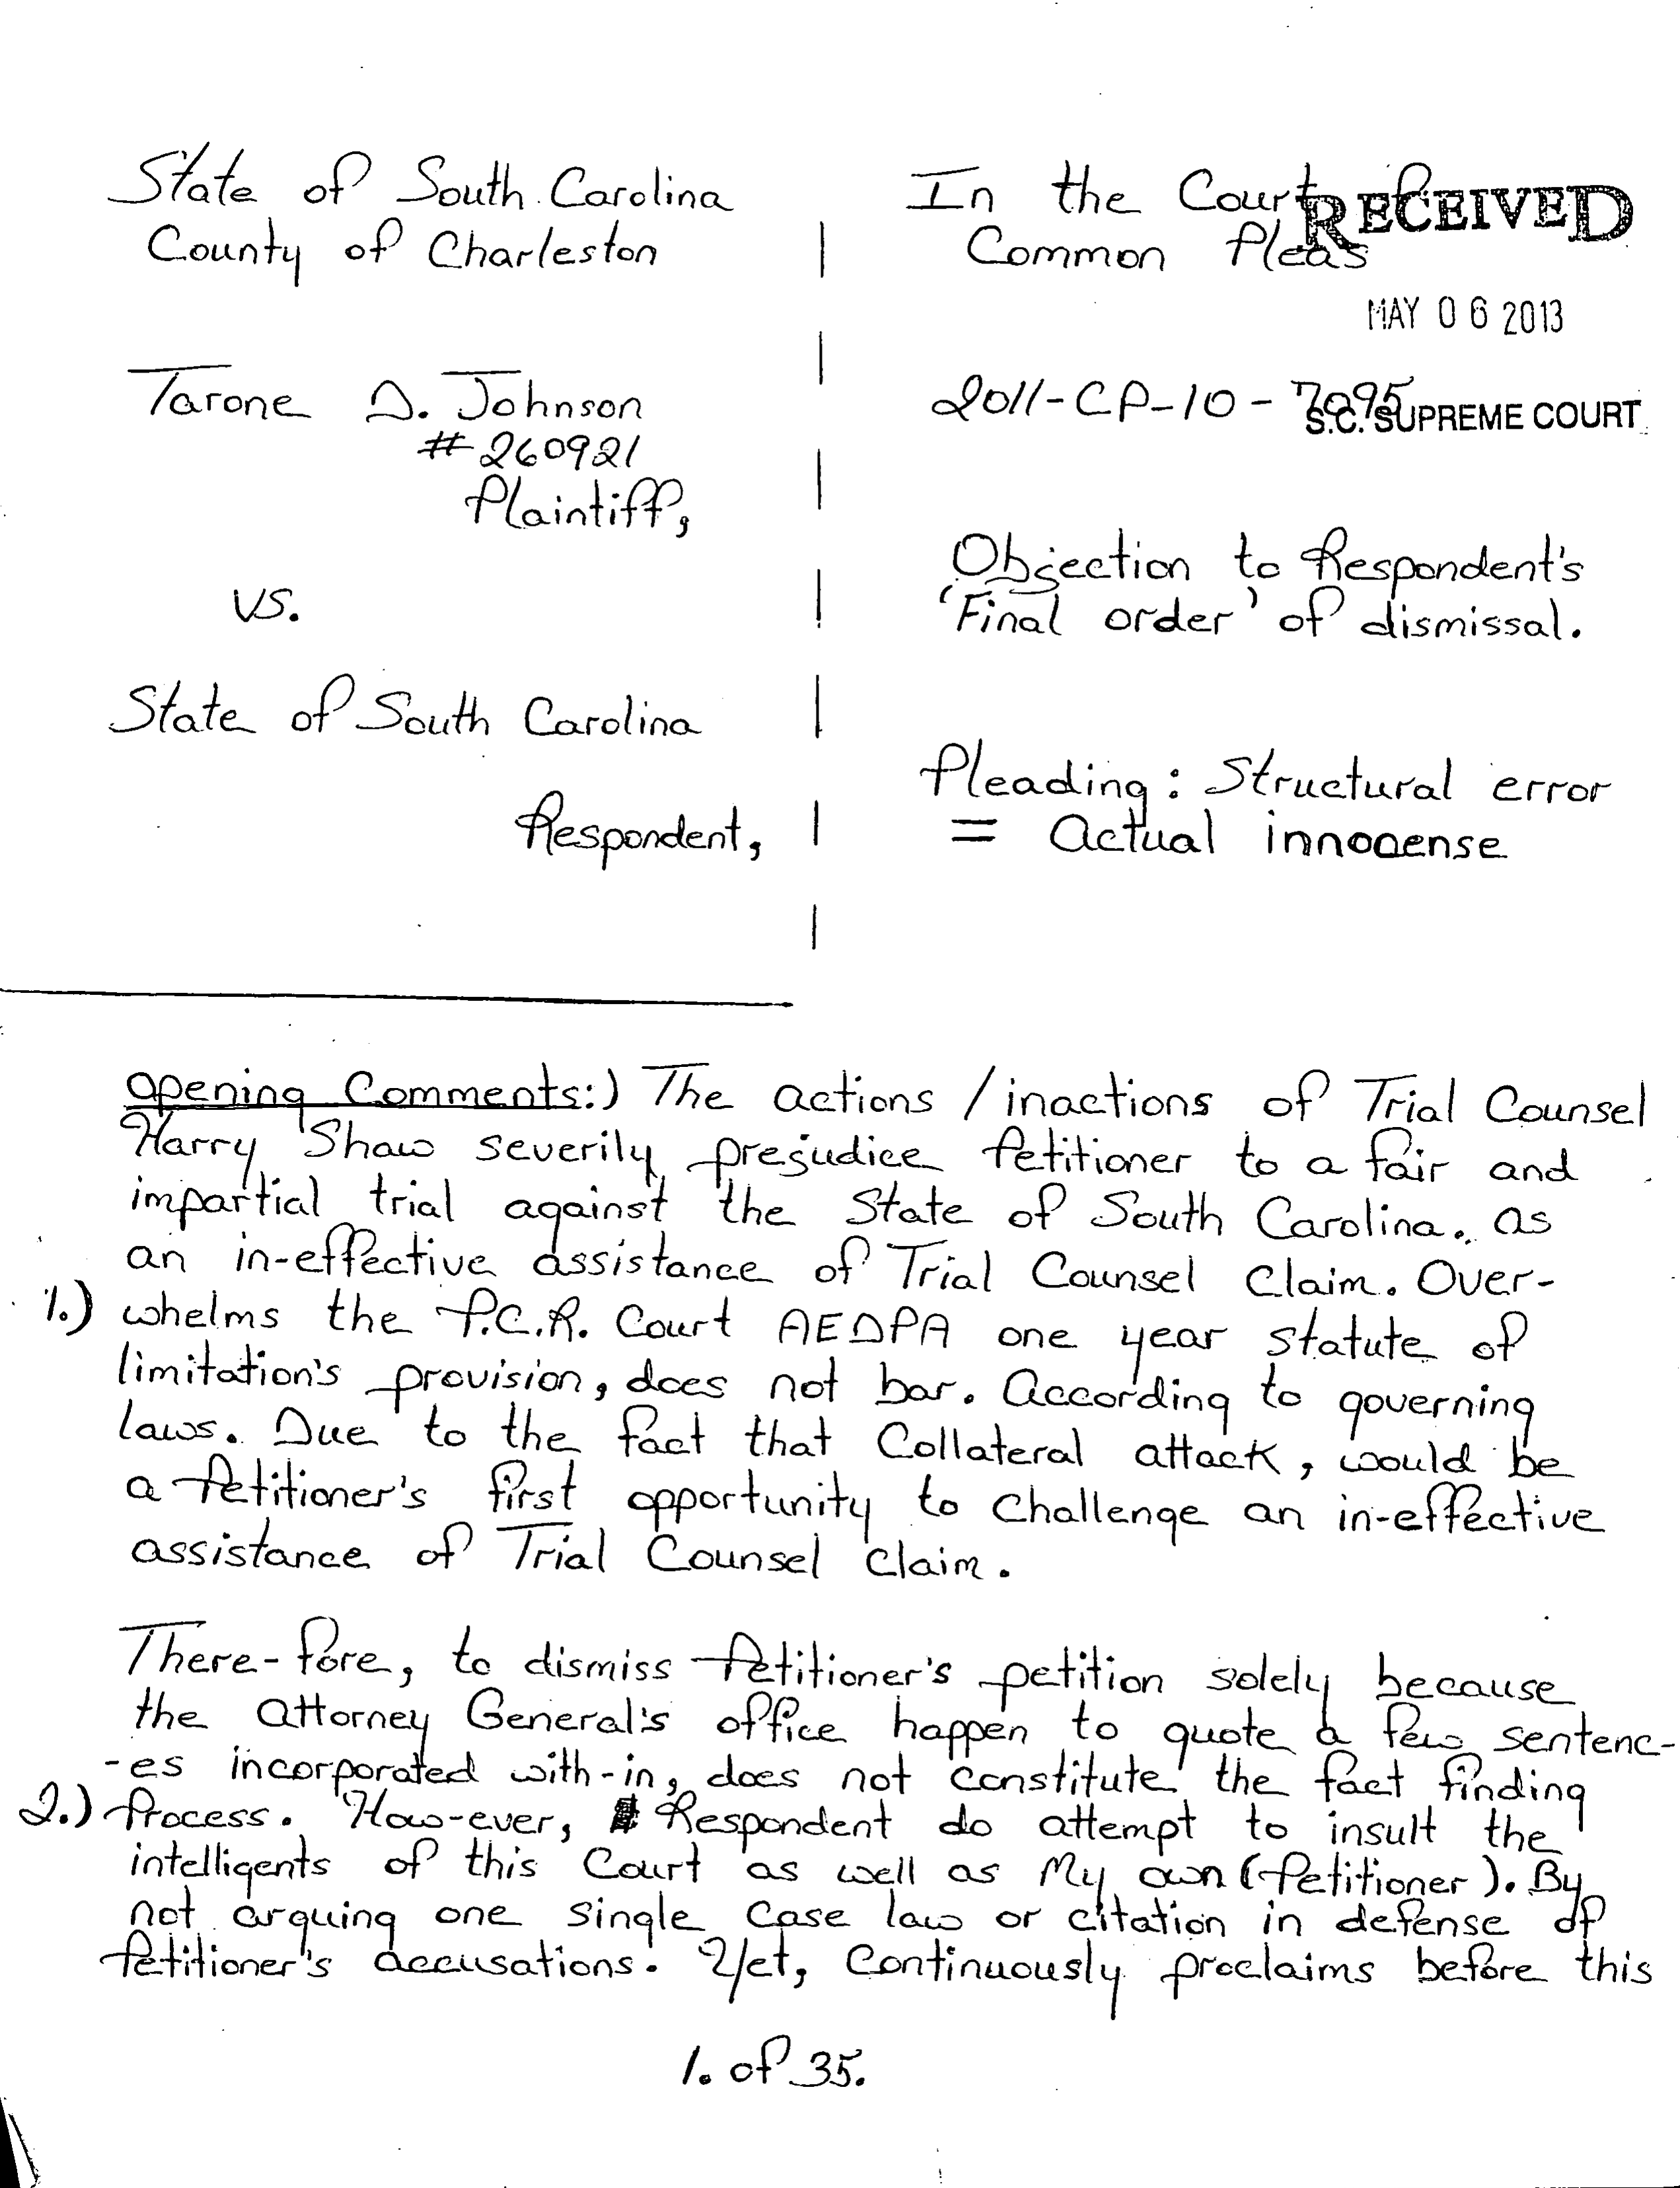 State of South Carolina
County of Charleston
In the Court of
Common Pleas
RECEIVED
MAY 06 2013
S.C. SUPREME COURT
Tarone D. Johnson
#260921
Plaintiff,
2011-CP-10-7095
vs.
Objection to Respondent's
'Final order' of dismissal.
State of South Carolina
Respondent,
Pleading: Structural error
= Actual innocense
Opening Comments:) The actions / inactions of Trial Counsel
Harry Shaw severily prejudice Petitioner to a fair and
impartial trial against the State of South Carolina. as
an in-effective assistance of Trial Counsel Claim. Over-
1.) whelms the P.C.R. Court AEDPA one year statute of
limitation's provision, does not bar. According to governing
laws. Due to the fact that Collateral attack, would be
a Petitioner's first opportunity to Challenge an in-effective
assistance of Trial Counsel Claim.
There-fore, to dismiss Petitioner's petition solely because
the Attorney General's office happen to quote a few sentenc-
-es incorporated with-in, does not constitute the fact finding
2.) Process. How-ever, Respondent do attempt to insult the
intelligents of this Court as well as My own (Petitioner). By
not arguing one single Case law or citation in defense of
Petitioner's accusations. Yet, Continuously proclaims before this
1. of 35.